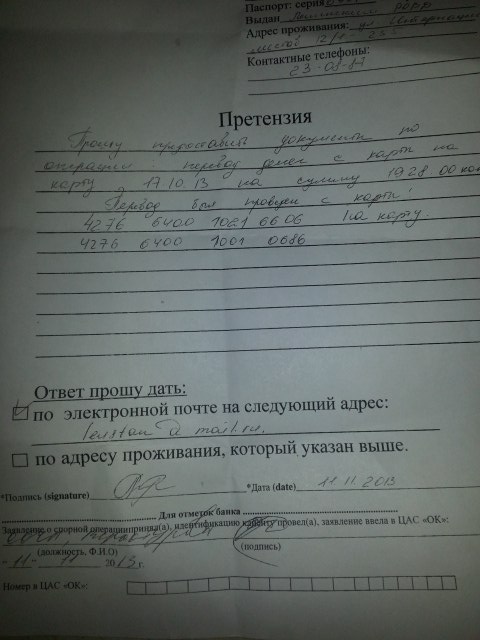 Паспорт: серия
Выдан
Адрес проживания: ул
Контактные телефоны:
23-08-83
Претензия
Прошу предоставить документы по
операции перевод денег с карты на
карту 17.10.13 на сумму 1928 00 коп
Перевод был проведен с карты
4276 6400 1021 6606 на карту
4276 6400 1001 0686
Ответ прошу дать:
по электронной почте на следующий адрес:
@ mail.ru.
по адресу проживания, который указан выше.
*Подпись (signature) *Дата (date) 11 11. 2013
Для отметок банка
Заявление о спорной операции принял(а), идентификацию клиента провел(а), заявление ввел в ЦАС «ОК»:
(должность, Ф.И.О) (подпись)
"11" 11 2013 г.
Номер в ЦАС «ОК»: